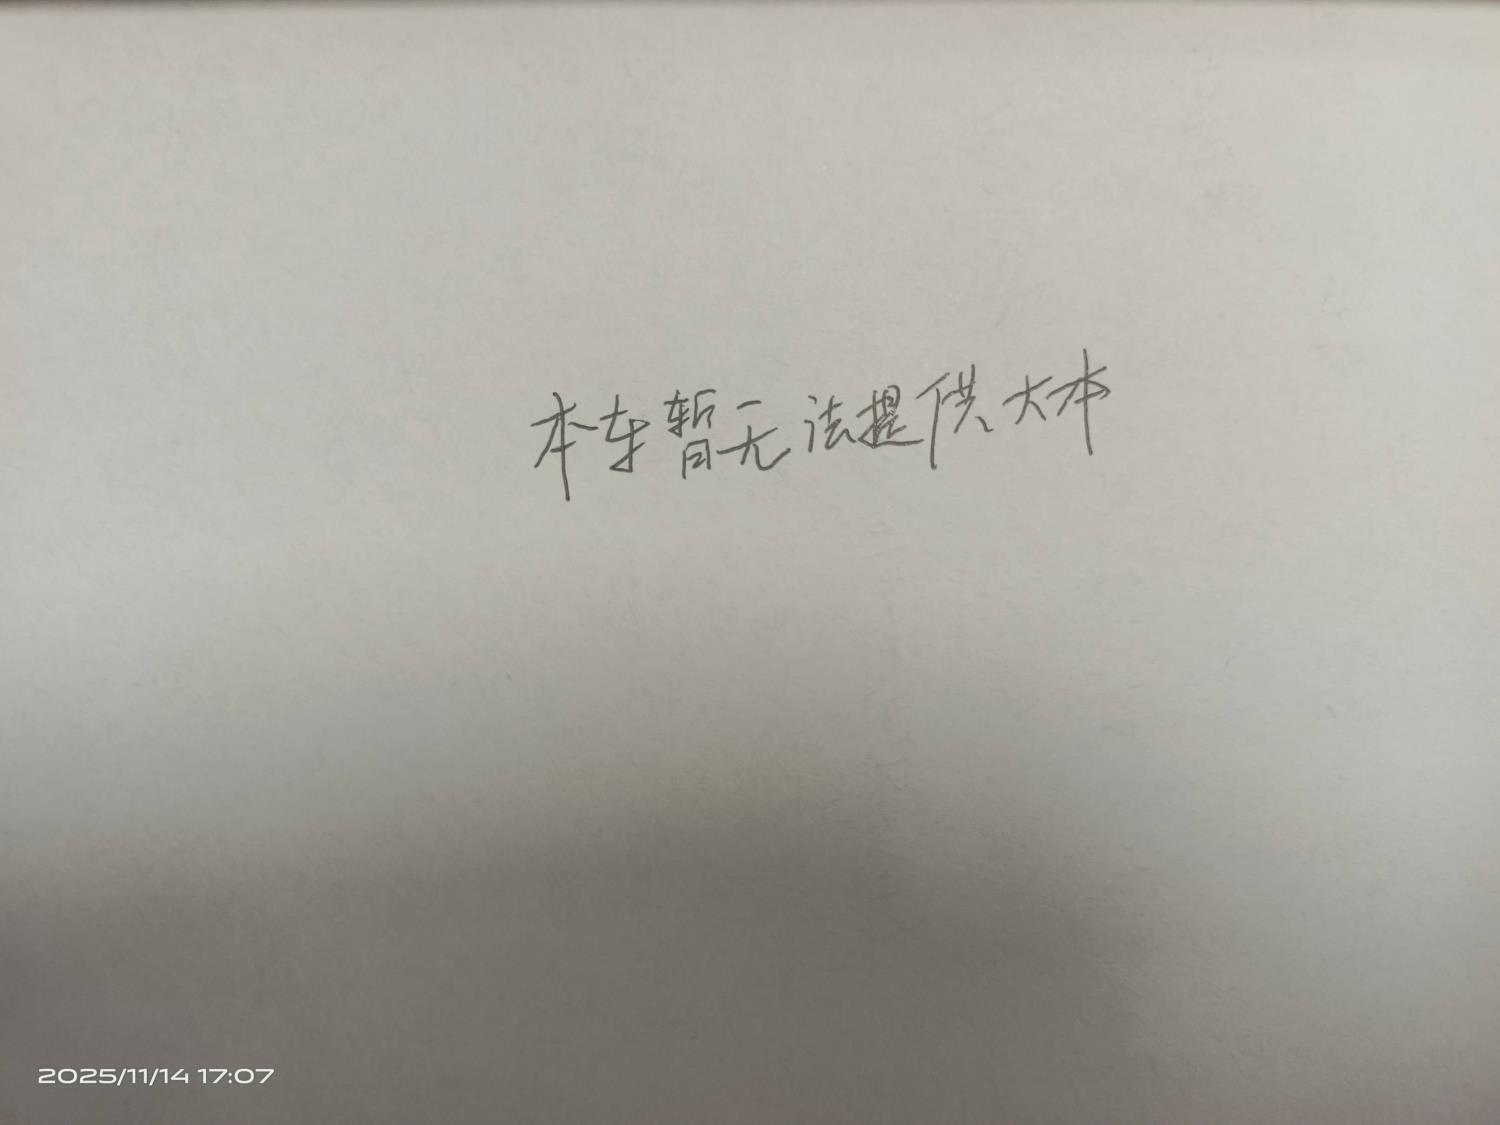 本车暂无法提供大本
2025/11/14 17:07